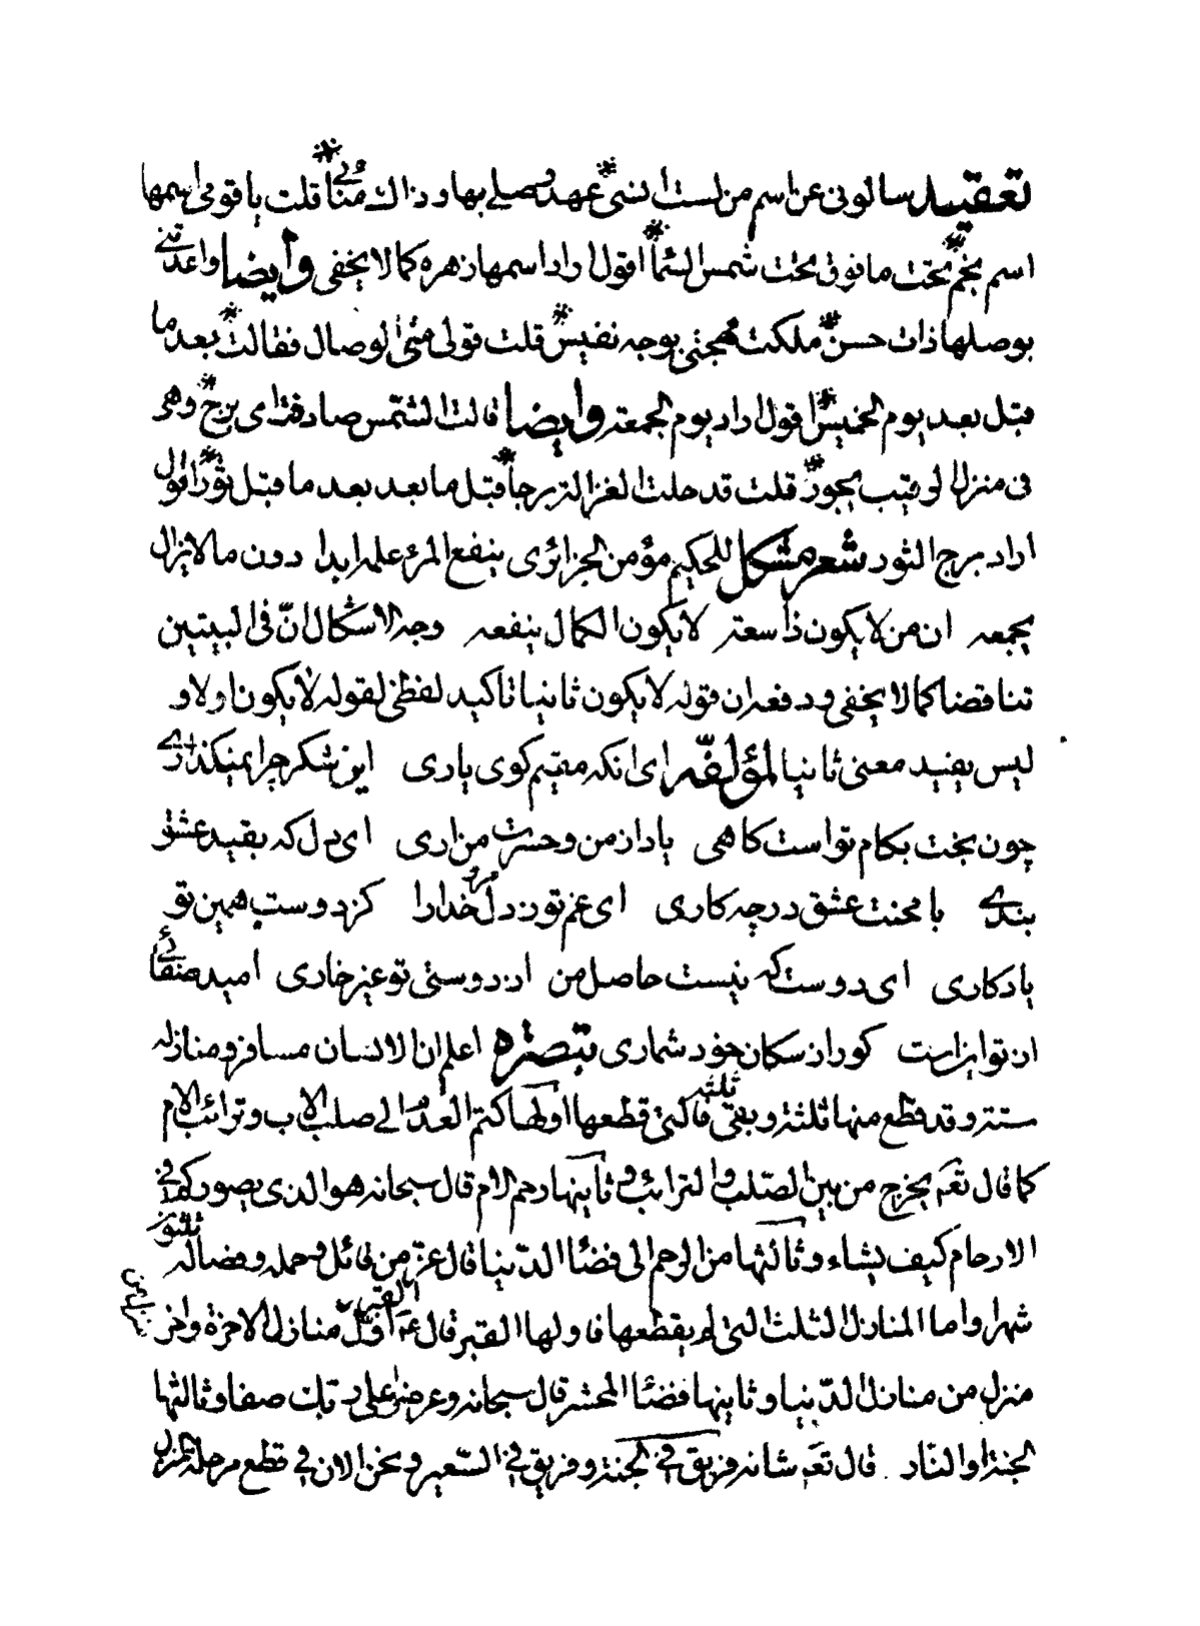 تعقيد سالوني عن اسم من لست انسى عهد وصلي بها وذاك منائي قلت يا قوم اسمها
اسم نجم تحت ما فوق تحت شمس السما اقول اراد اسمها زهره كما لا يخفى وايضا واعدتني
بوصلها ذات حسن ملكت مهجتي بوجه نفيس قلت قولي متى الوصال فقالت بعد ما
قبل بعد يوم الخميس اقول اراد يوم الجمعة وايضا قالت الشمس صادفت اي برج وهي
في منزل الرقيب بجور قلت قد حلت الغزالة برجا قبل ما بعد بعد ما قبل ثور اقول
اراد برج الثور شعر مشكل للحكيم مؤمن الجزائري ينفع المرء علم ابدا دون ما لا يزال
يجمعه ان من لا يكون ذا سعة لا يكون الكمال ينفعه وجه الاشكال انّ في البيتين
تناقضا كما لا يخفى ودفعه ان قوله لا يكون ثانيا تاكيد لفظي لقوله لا يكون اولا و
ليس يفيد معنى ثانيا لمؤلفه اي انكه مقيم كوي ياري اين شكر چرا نميكذاري
چون بخت بكام تو است كاهي ياد از من وحسرت من اري اي دل كه بقيد عشق
بندي با محنت عشق در چه كاري اي غم تو ز دل مرو خدا را كز دوست همين تو
يادكاري اي دوست كه نيست حاصل من از دوستي تو غير خاري اميد صفائي
از تو اين است كو را ز سكان خود شماري تبصره اعلم ان الانسان مسافر ومنازله
ستة وقد قطع منها ثلثة وبقي ثلثه فالتي قطعها اولها كتم العدم الى صلب الاب وترائب الام
كما قال تعه يخرج من بين الصلب والترائب وثانيها رحم الام قال سبحانه هو الذي يصوركم في
الارحام كيف يشاء وثالثها من الرحم الى فضاء الدنيا قال عز من قائل وحمله وفصاله ثلثون
شهرا واما المنازل الثلث التي لم يقطعها فاولها القبر قال ع القبر اول منازل الاخرة واخر
منزل من منازل الدنيا وثانيها فضاء المحشر قال سبحانه وعرضوا على ربك صفا وثالثها
الجنة او النار قال تعه شانه فريق في الجنة وفريق في السعير ونحن الان في قطع مرحلة المنزل